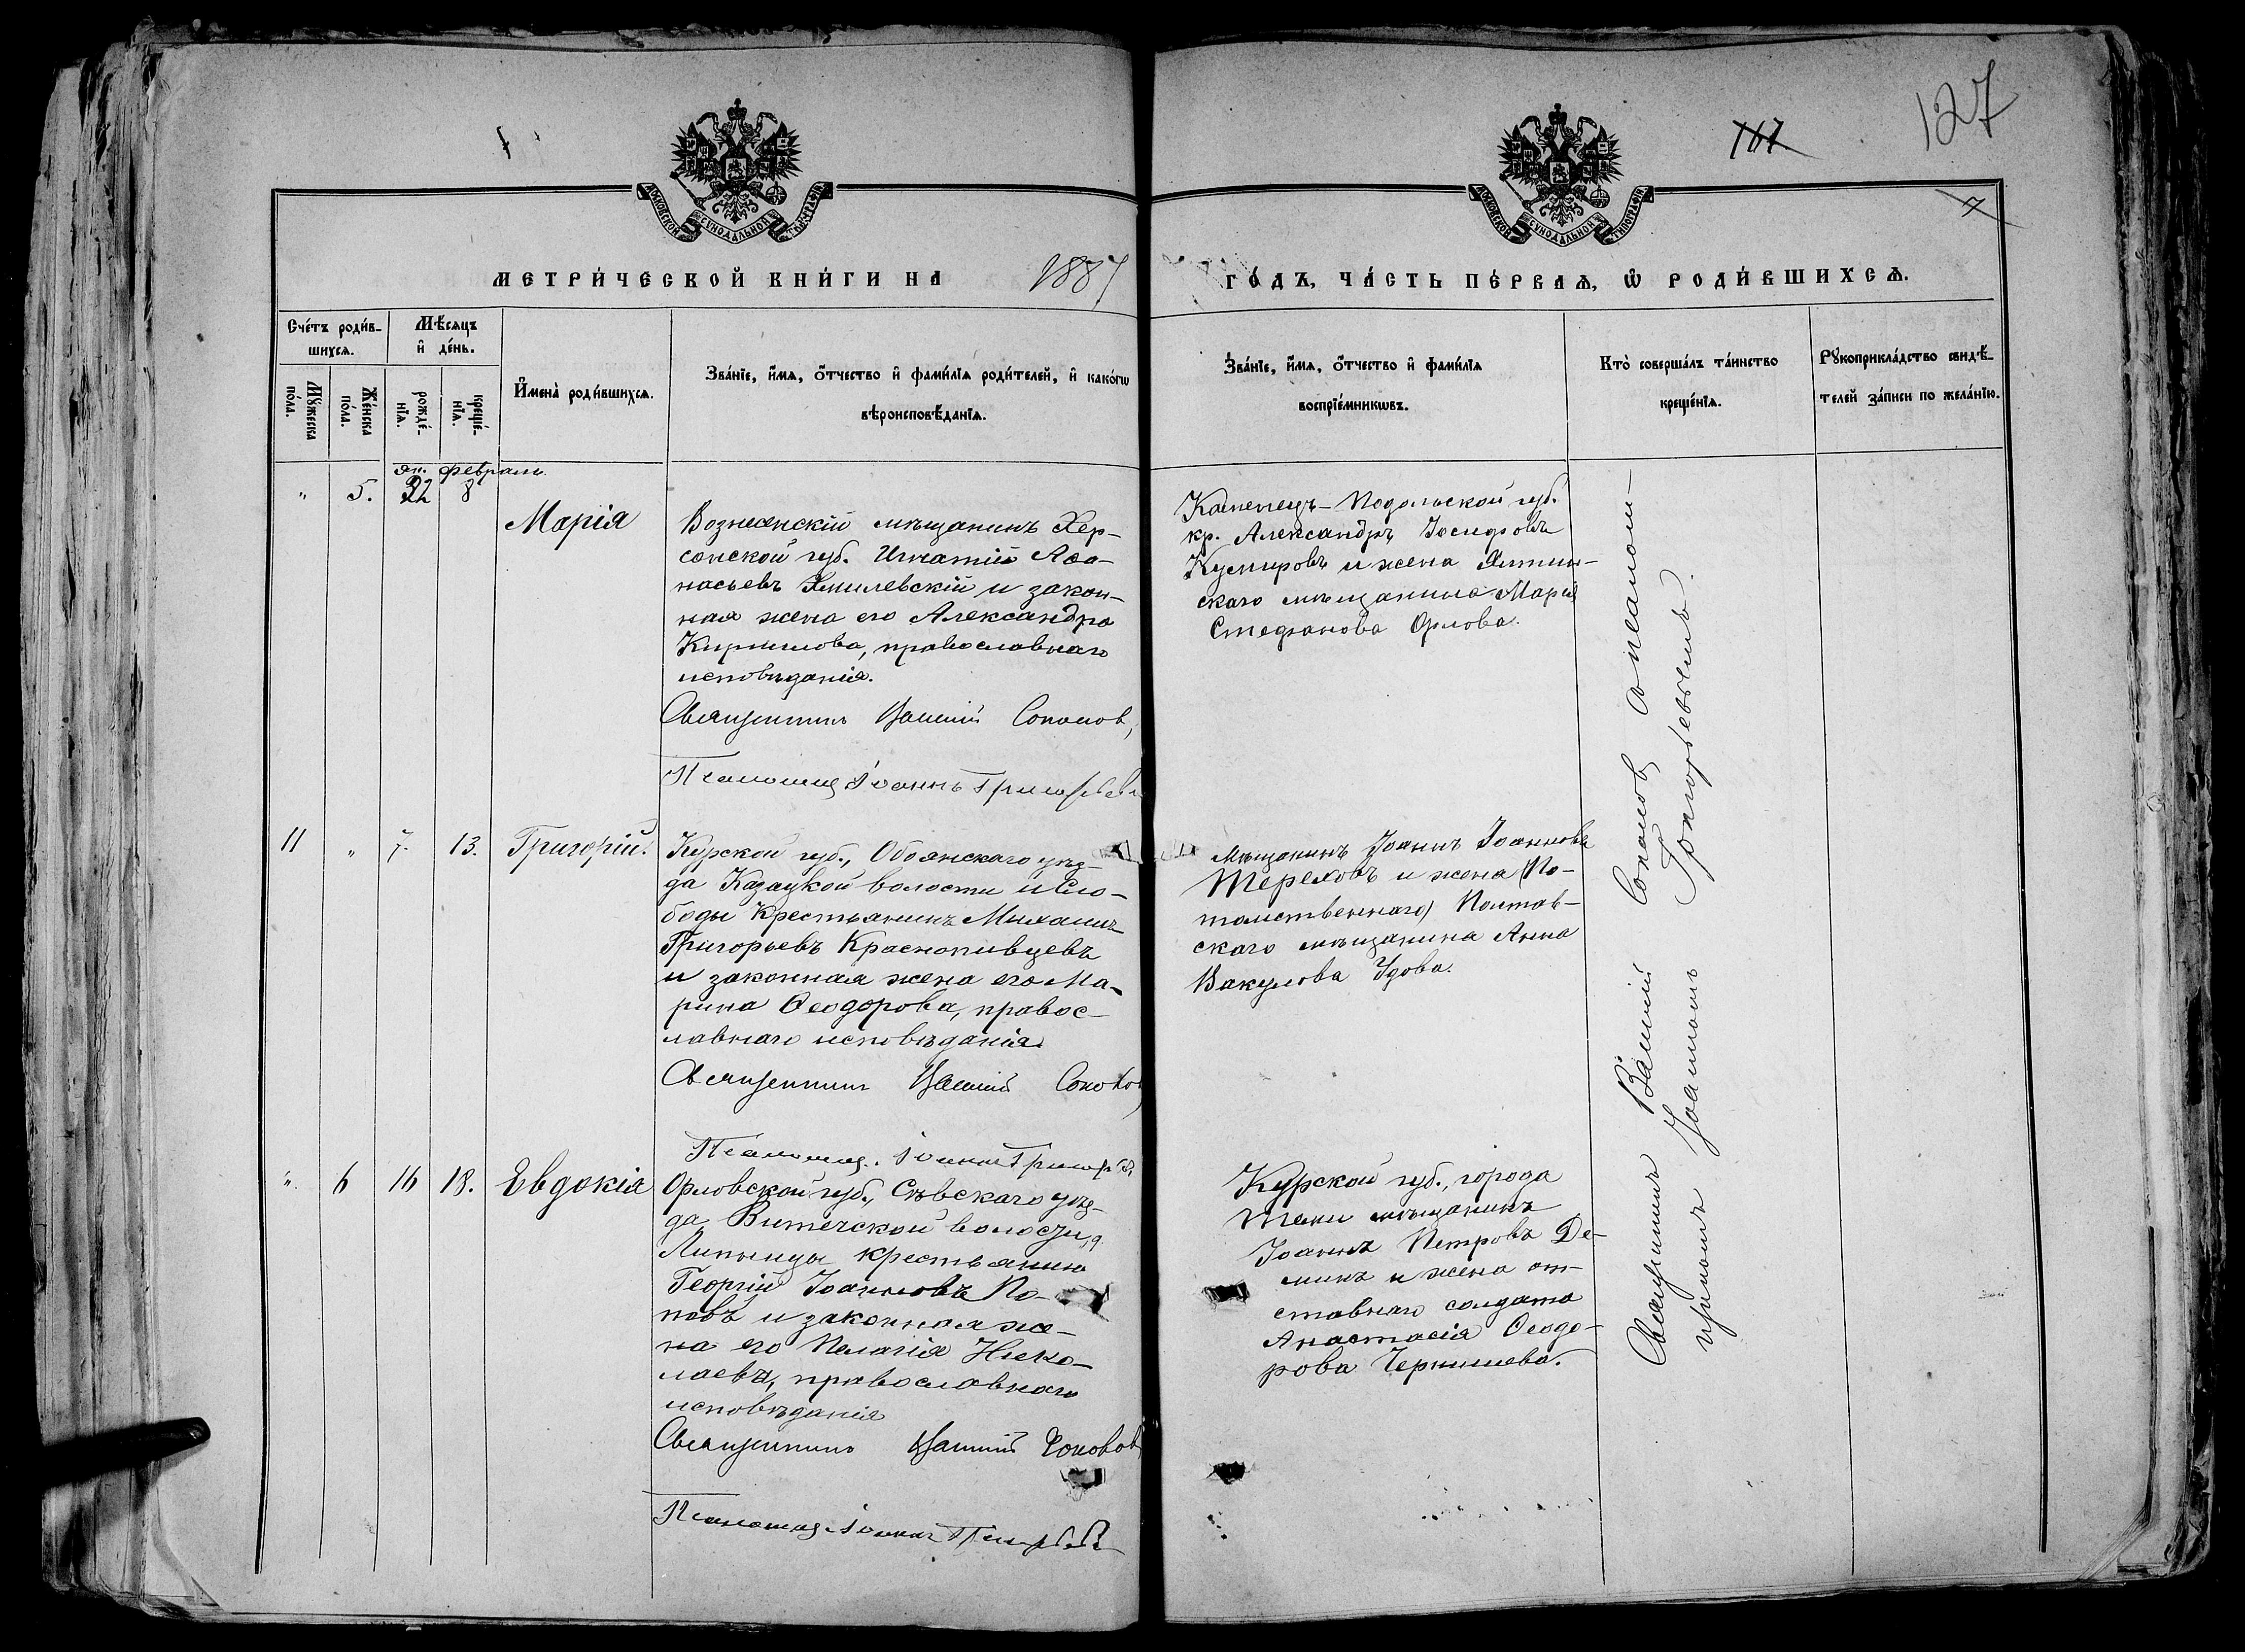 127
7
МОСКОВСКОЙ СУНОДАЛЬНОЙ ТИПОГРАФІИ
МОСКОВСКОЙ СУНОДАЛЬНОЙ ТИПОГРАФІИ
МЕТРИ́ЧЕСКОЙ КНИ́ГИ НА 1887 ГО́ДЪ, ЧА́СТЬ ПЕ́РВАѦ, Ѡ҆ РОДИ́ВШИХСѦ.
Сче́тъ роди́в-
шихсѧ.
Мꙋ́жеска по́ла.
Же́нска по́ла.
Мѣ́сѧцъ
и҆ де́нь.
рожде́-нїѧ.
креще́-нїѧ.
И҆мена̀ роди́вшихсѧ.
Зва́нїе, и҆́мѧ, ѻ҆́тчество и҆ фами́лїѧ роди́телей, и҆ како́гѡ
вѣроисповѣ́данїѧ.
Зва́нїе, и҆́мѧ, ѻ҆́тчество и҆ фами́лїѧ
воспрїе́мникѡвъ.
Кто̀ соверша́лъ та́инство
креще́нїѧ.
Рꙋкоприкла́дство свидѣ́-
телей за́писи по жела́нїю.
Ян. Февраль
" 5. 22 8
Марія
Вознесенскій мѣщанинъ Хер-
сонской губ. Игнатій Аѳа-
насьевъ Хмилевскій и закон-
ная жена его Александра
Кирилова, православнаго
исповѣданія.
Священникъ Василій Соколов,
Псаломщ. Іоаннъ Григорьевъ
Каменецъ-Подольской губ.
кр. Александръ Іосифовъ
Кушировъ и жена Ялтин-
скаго мѣщанина Марія
Стефанова Орлова.
11 " 7. 13. Григорій.
Курской губ., Обоянскаго уѣз-
да Казацкой волости и Сло-
боды Крестьянинъ Михаилъ
Григорьевъ Краснопивцевъ
и законная жена его Ма-
рина Ѳеодорова, правос-
лавнаго исповѣданія.
Священникъ Василій Соколов
Псаломщ. Іоаннъ Григорьевъ
Мѣщанинъ Іоаннъ Іоанновъ
Тереховъ и жена (По-
томственнаго) Полтав-
скаго мѣщанина Анна
Вакулова Удова.
" 6 16 18. Евдокія
Орловской губ., Сѣвскаго уѣз-
да Витичской волости, д.
Липницы крестьянинъ
Георгій Іоанновъ По-
повъ и законная же-
на его Пелагія Нико-
лаева, православнаго
исповѣданія
Священникъ Василій Соколов
Псаломщ. Іоаннъ Григорьевъ
Курской губ., города
Тени мѣщанинъ
Іоаннъ Петровъ Де-
минъ и жена от-
ставнаго солдата
Анастасія Ѳеодо-
рова Чернышева.
Священникъ Василій Соколов с псаломщ-
Іоанномъ Григорьевымъ.